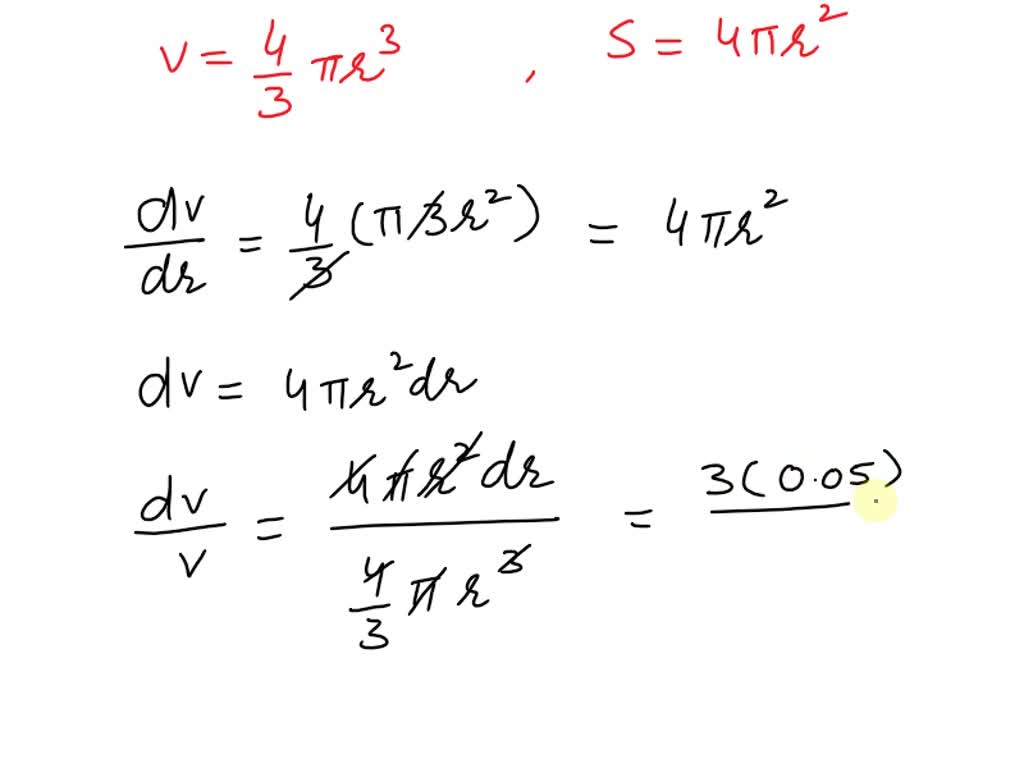 v = 4/3 πr³ , S = 4πr²
dv/dr = 4/3 (π3r²) = 4πr²
dv = 4πr²dr
dv/v = 4πr²dr / 4/3 πr³ = 3(0.05)